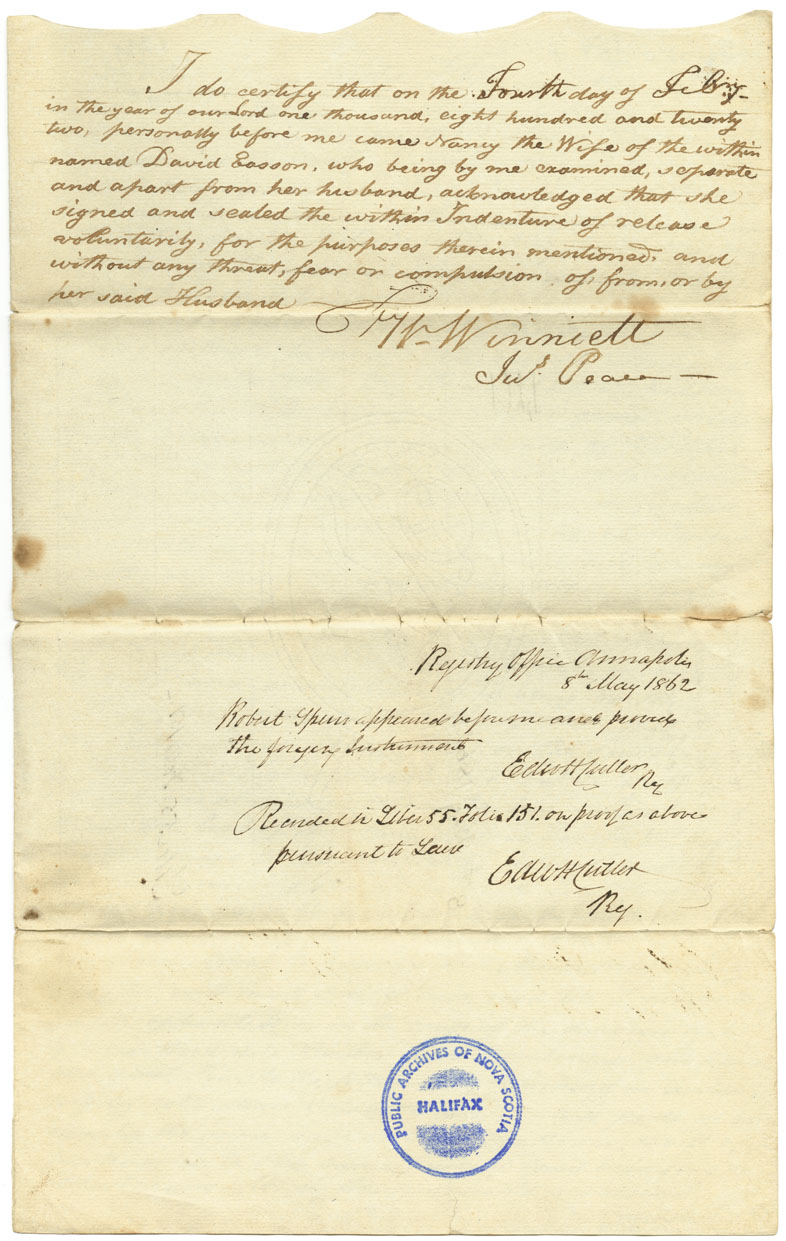 I do certify that on the Fourth day of Febry
in the year of our Lord one thousand, eight hundred and twenty
two, personally before me came Nancy the Wife of the within
named David Easson, who being by me examined, separate
and apart from her husband, acknowledged that she
signed and sealed the within Indenture of release
voluntarily, for the purposes therein mentioned, and
without any threat, fear or compulsion of, from, or by
her said Husband
Wm Winniett
Jus. Peace
Registry Office Annapolis
8th May 1862
Robert Spurr appeared before me and proved
the foregoing Instrument
Edw H Cutler
Reg
Recorded in Liber 55. Folio 151. on proof as above
pursuant to Law
Edw H Cutler
Reg.
PUBLIC ARCHIVES OF NOVA SCOTIA
HALIFAX